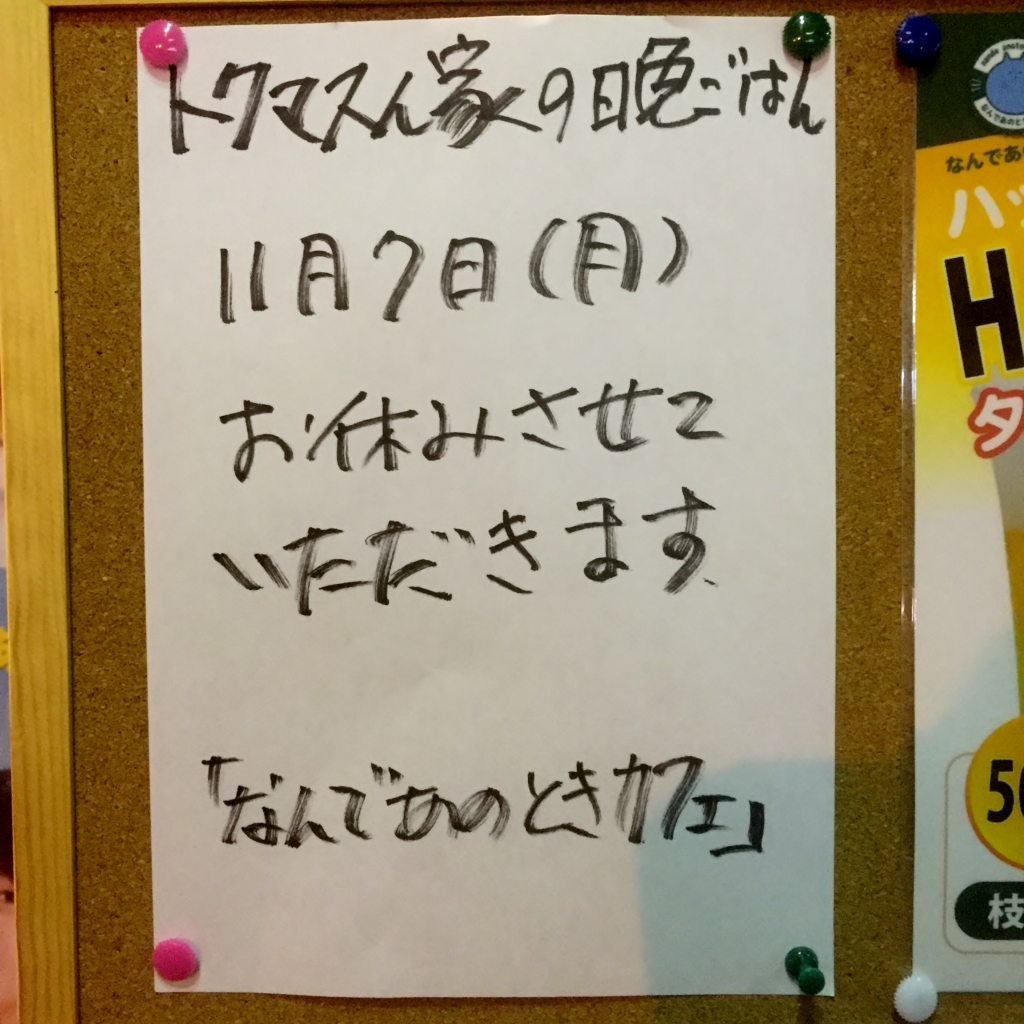 トクマスん家の晩ごはん
11月7日(月)
お休みさせて
いただきます
「なんであのときカフェ」
なんであ
ハッ
H
タ
50
枝